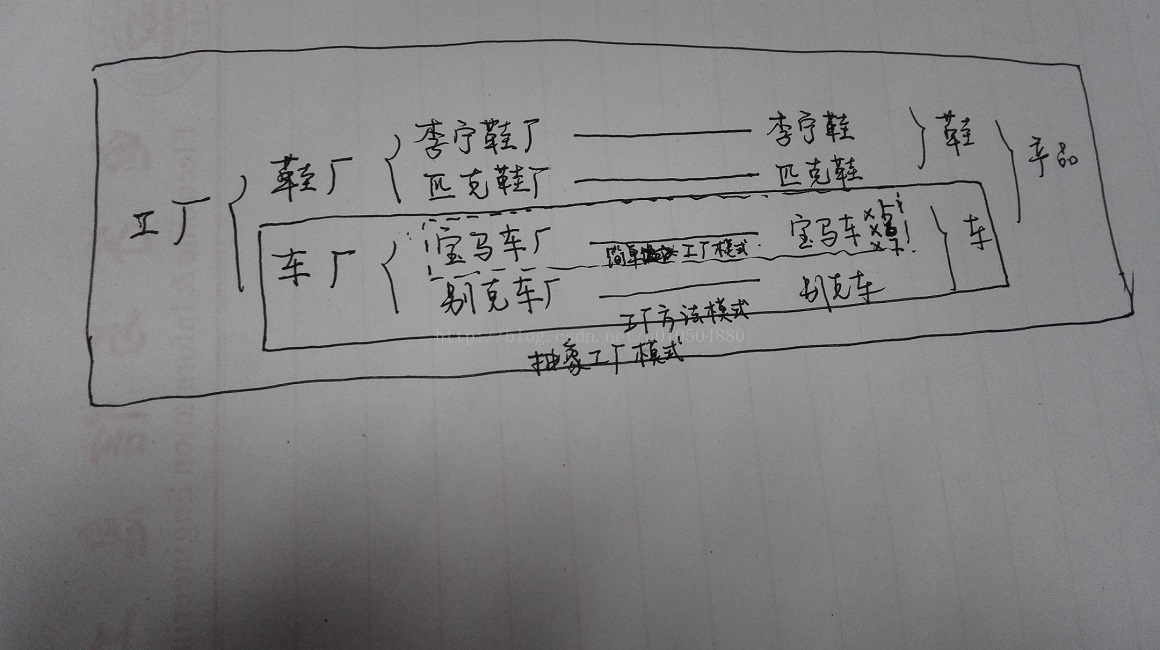 李宁鞋厂 李宁鞋 鞋
鞋厂 匹克鞋厂 匹克鞋 产品
工厂
宝马车厂 简单工厂模式 宝马车 车
车厂
别克车厂 别克车
工厂方法模式
http://blog.csdn.net/
抽象工厂模式